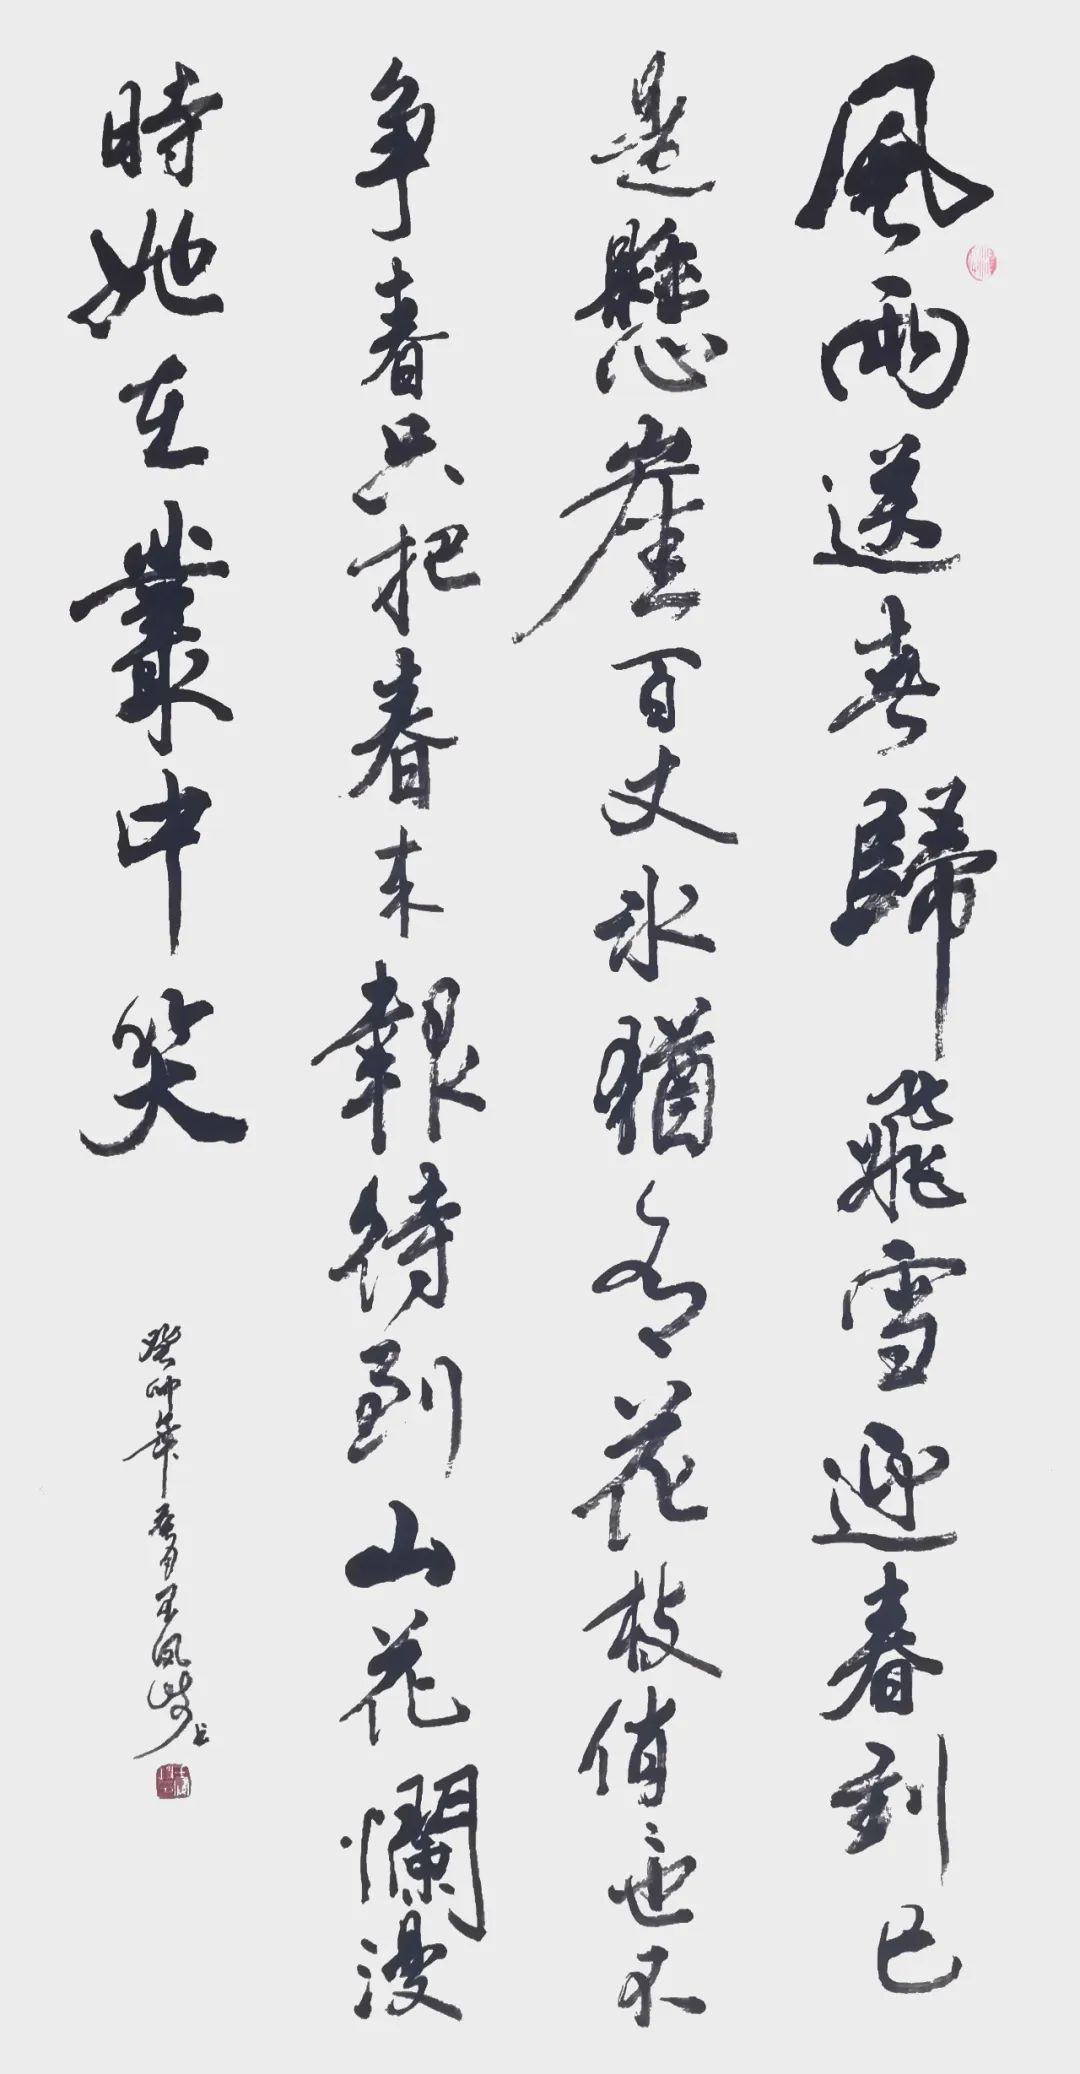 風雨送春歸飛雪迎春到已
是懸崖百丈冰猶有花枝俏〻也不
争春只把春来報待到山花爛漫
時她在叢中笑
癸卯年